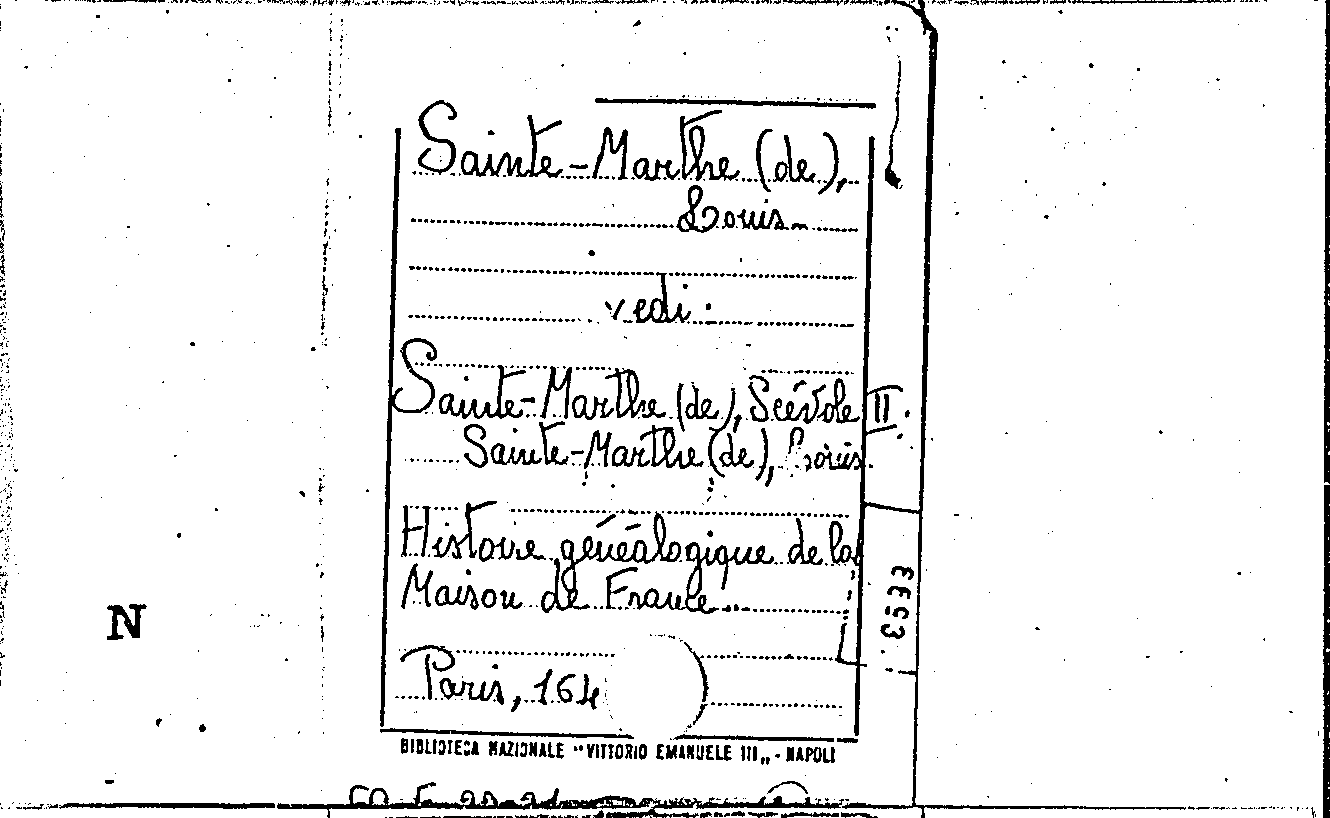 Sainte-Marthe (de),
Louis
vedi:
Sainte-Marthe (de), Scévole II.
Sainte-Marthe (de), Louis.
Histoire généalogique de la
Maison de France...
Paris, 164
BIBLIOTECA NAZIONALE "VITTORIO EMANUELE III„ - NAPOLI
N